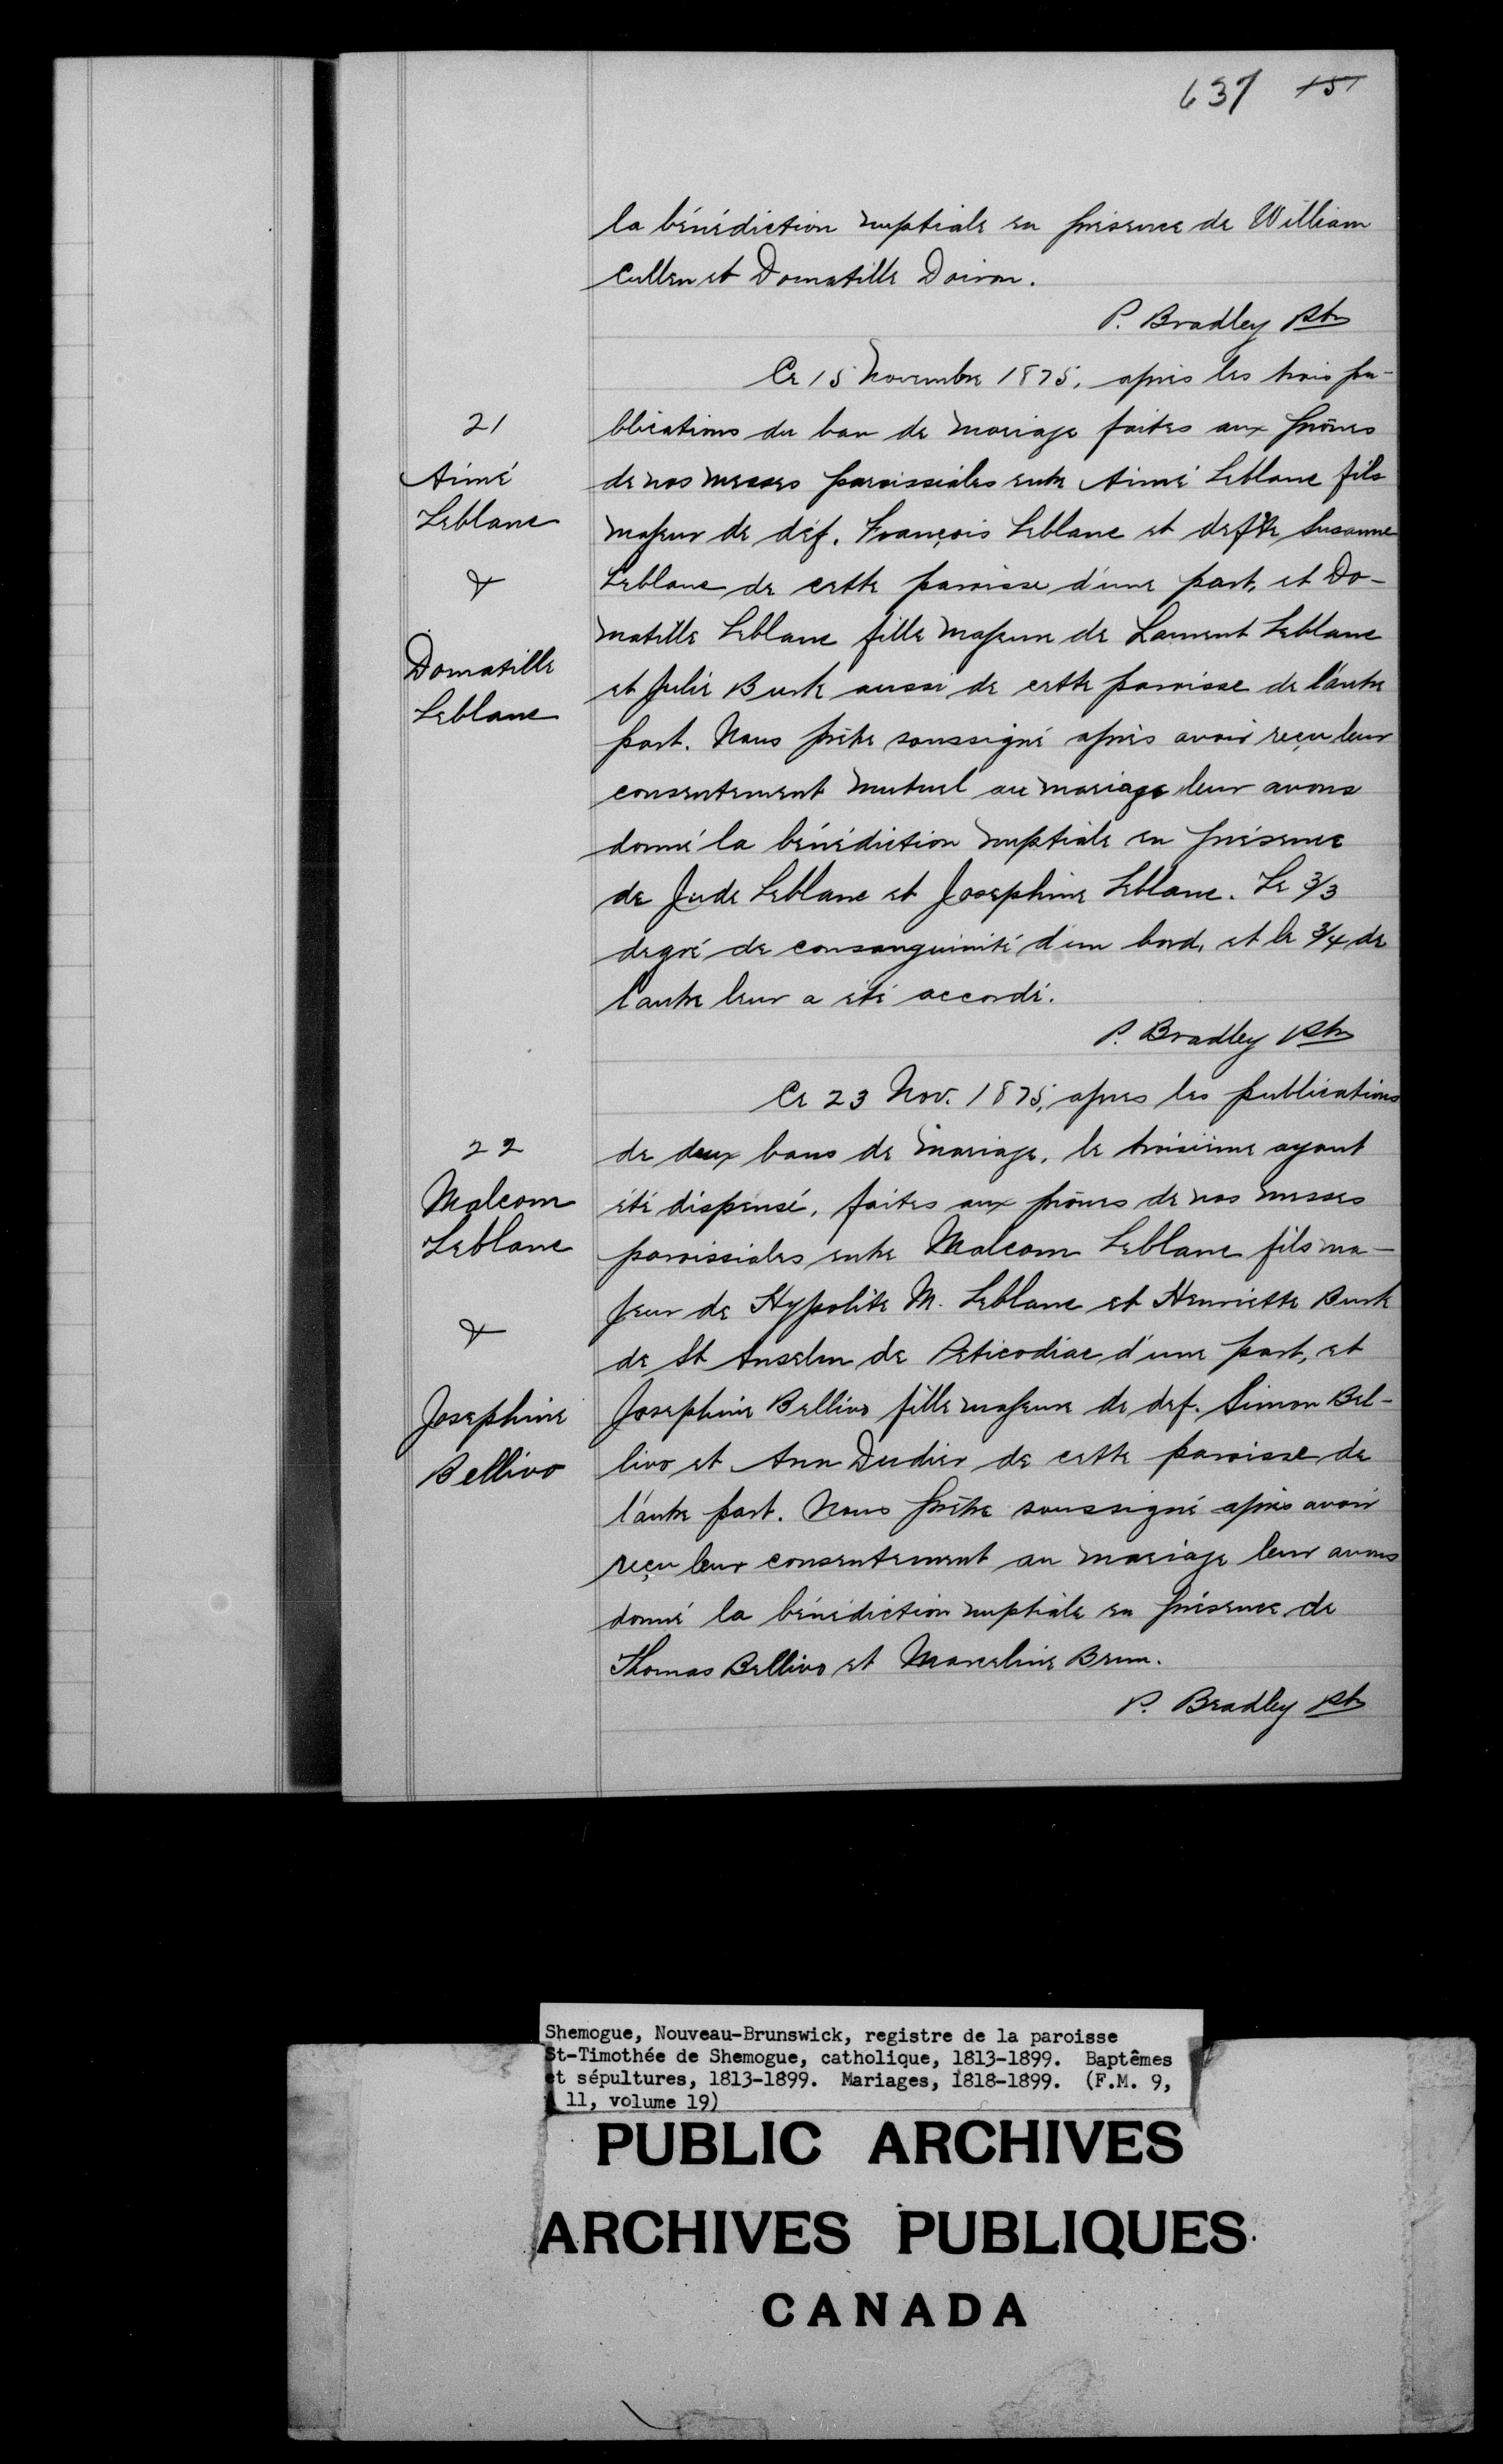 637 151
la bénédiction nuptiale en présence de William
Cullen et Domatille Doiron.
P. Bradley Ptr
Ce 15 Novembre 1875, après les trois pu-
21
blications du ban de mariage faites aux prônes
Aimé
de nos messes paroissiales entre Aimé Leblanc fils
Leblanc
majeur de déf. François Leblanc et defte Susanne
&
Leblanc de cette paroisse d'une part, et Do-
matille Leblanc fille majeure de Laurent Leblanc
Domatille
et Julie Burk aussi de cette paroisse de l'autre
Leblanc
part. Nous prêtre soussigné après avoir reçu leur
consentement mutuel au mariage leur avons
donné la bénédiction nuptiale en présence
de Jude Leblanc et Josephine Leblanc. Le 3/3
degré de consanguinité d'un bord, et le 3/4 de
l'autre leur a été accordé.
P. Bradley Ptr
Ce 23 Nov. 1875, apres les publications
22
de deux bans de mariage, le troisième ayant
Malcom
été dispensé, faites aux prônes de nos messes
Leblanc
paroissiales entre Malcom Leblanc fils ma-
jeur de Hypolite M. Leblanc et Henriette Burk
&
de St Anselm de Peticodiac d'une part, et
Josephine
Josephine Bellivo fille majeure de def. Simon Bel-
Bellivo
livo et Ann Dudier de cette paroisse de
l'autre part. Nous prêtre soussigné après avoir
reçu leur consentement au mariage leur avons
donné la bénédiction nuptiale en présence de
Thomas Bellivo et Marceline Brun.
P. Bradley Ptr
Shemogue, Nouveau-Brunswick, registre de la paroisse
St-Timothée de Shemogue, catholique, 1813-1899. Baptêmes
et sépultures, 1813-1899. Mariages, 1818-1899. (F.M. 9,
11, volume 19)
PUBLIC ARCHIVES
ARCHIVES PUBLIQUES
CANADA